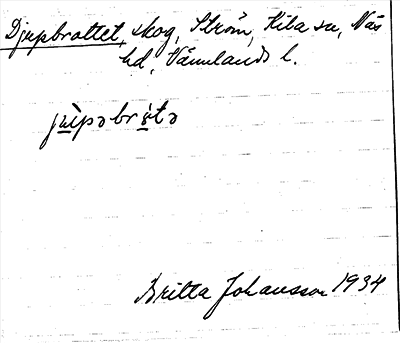 Djupbrattet, skog, Ström, Kila sn, Näs
hd, Värmlands l.
jùpəbrátə
Britta Johansson 1934